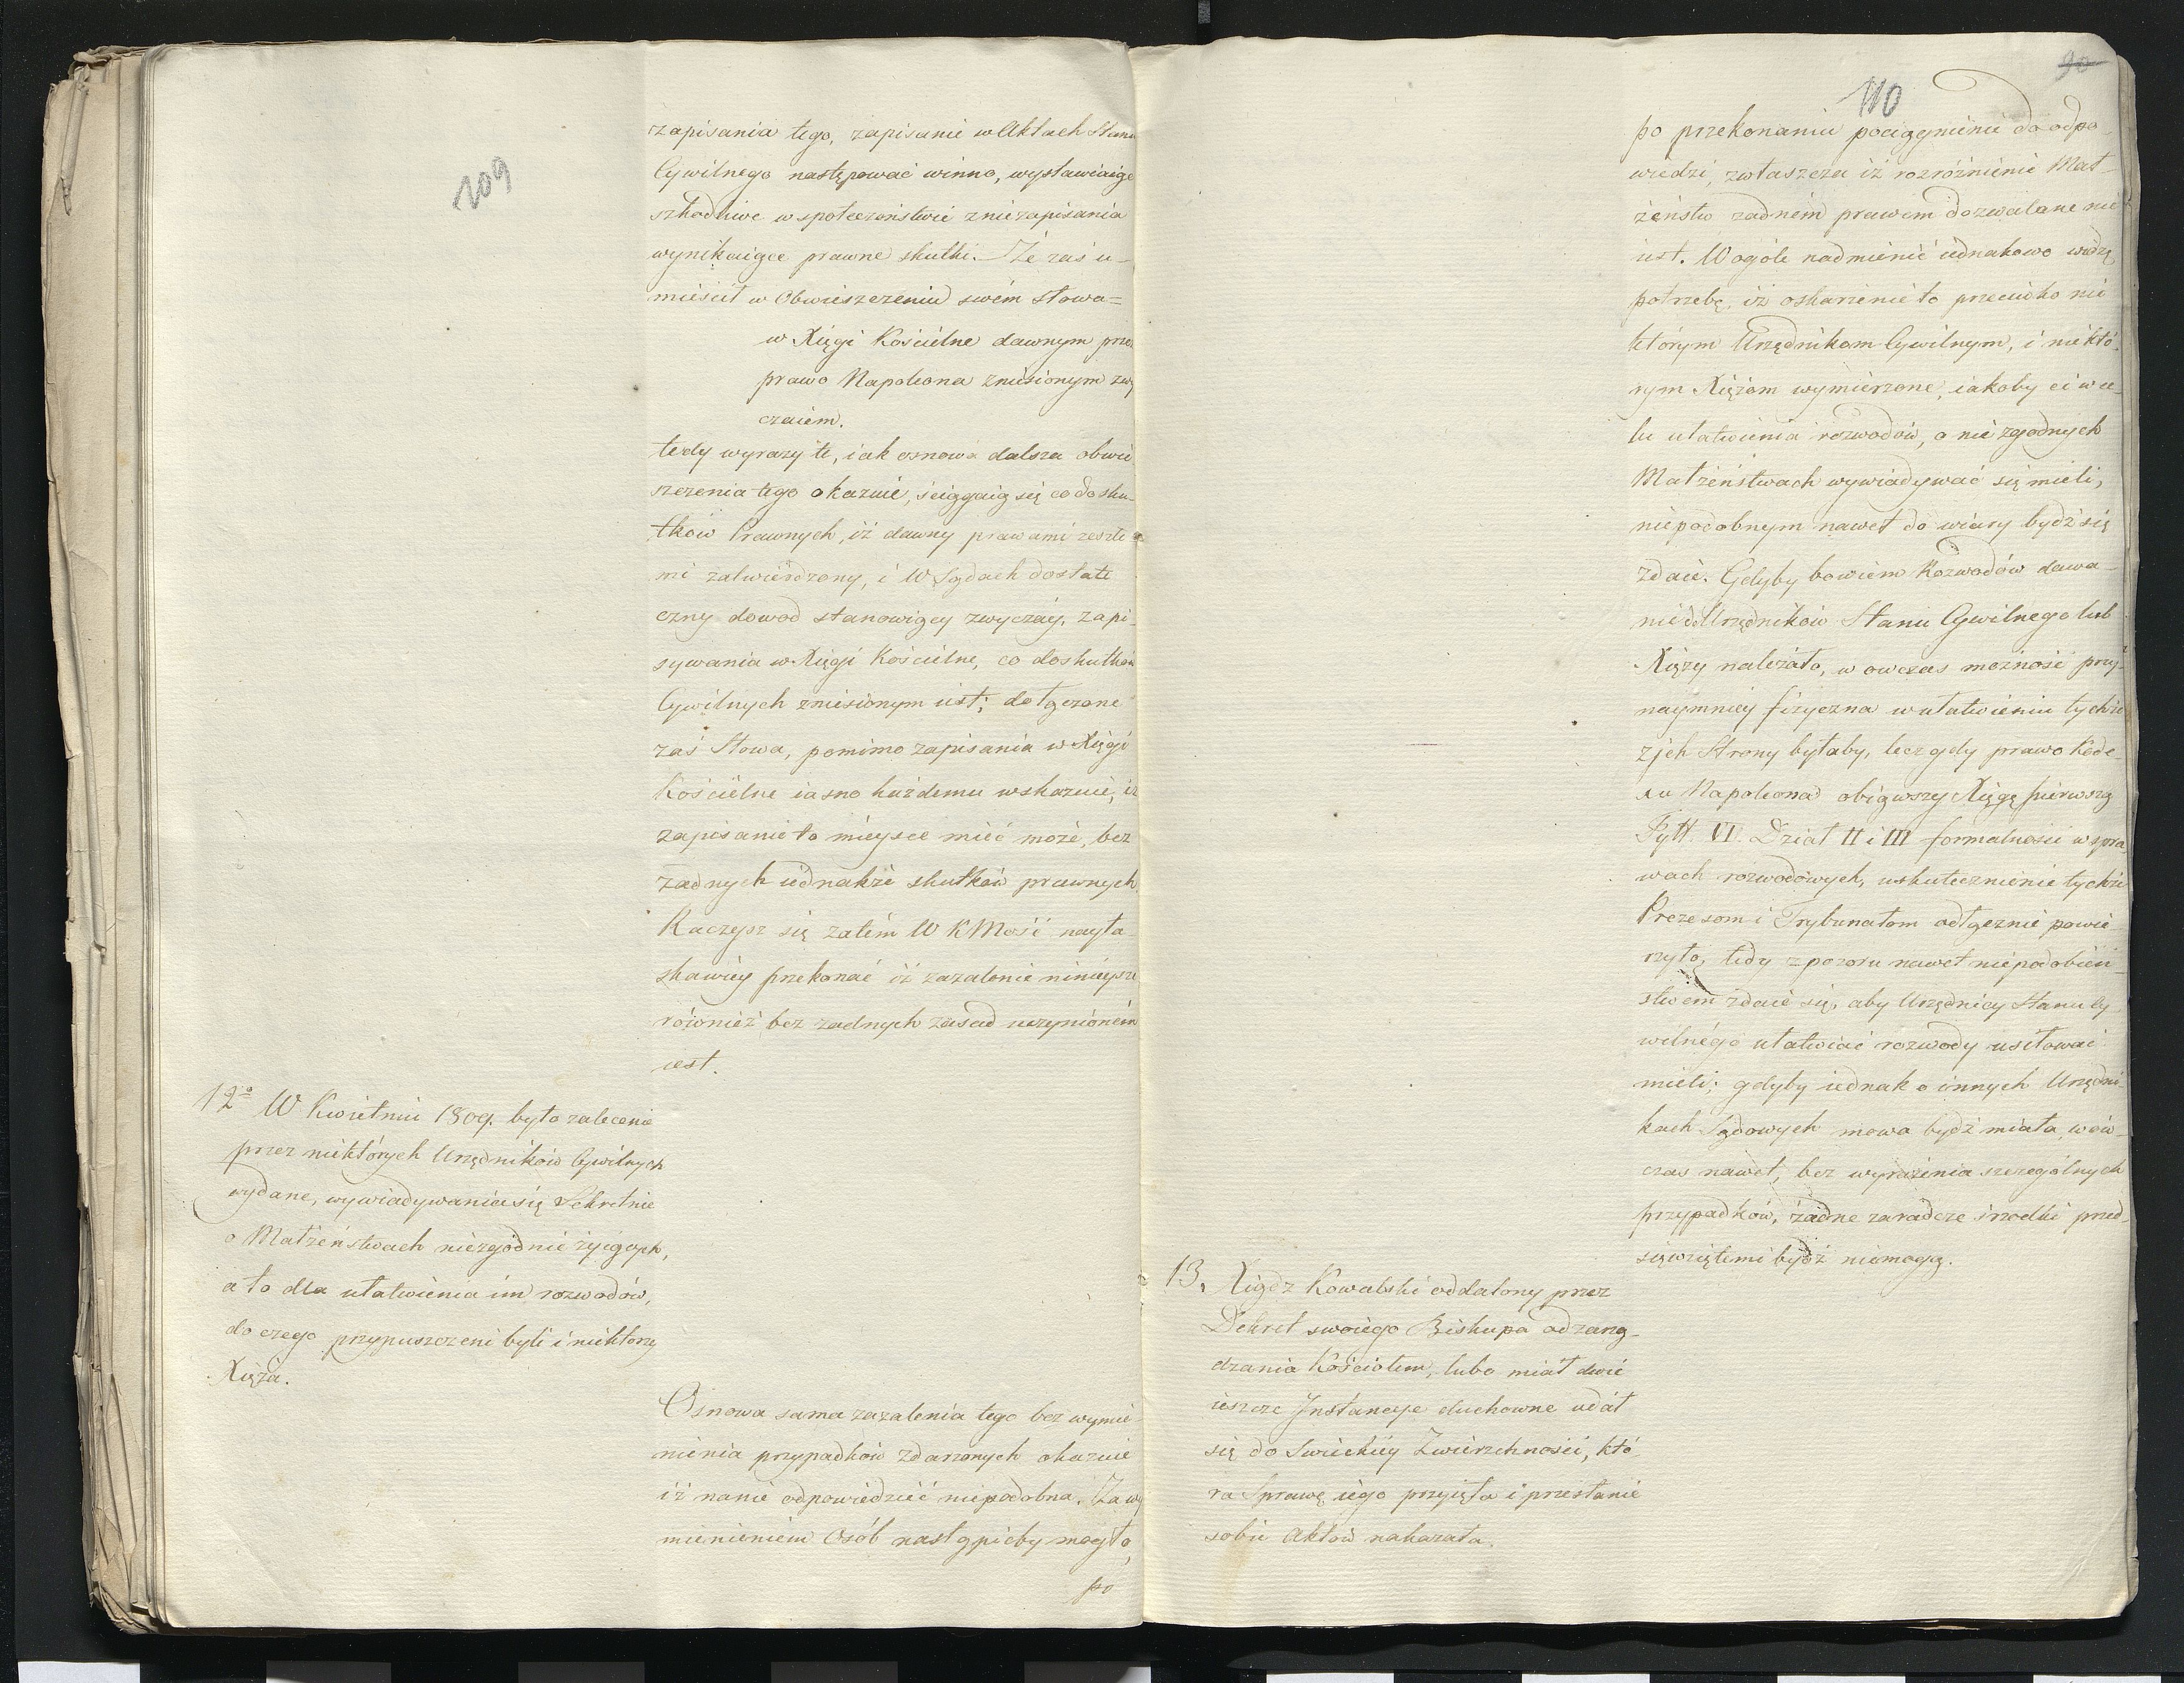 109
zapisania tego, zapisanie w Aktach Stanu
Cywilnego następować winno, wystawiaiąc
szkodliwe w społeczeństwie z niezapisania
wynikaiące prawne skutki. Że zaś u-
mieścił w Obwieszczeniu swém słowa=
w Xięgi Kościelne dawnym przez
prawo Napoleona zniesionym zwy
czaiem.
tedy wyrazy te, iak osnowa dalsza obwie
szczenia tego okazuie, ściągaią się co do sku-
tków Prawnych, iż dawny prawami zeszłe
mi zatwierdzony, i W Sądach dostate
czny dowod stanowiący zwyczay, zapi-
sywania w Xięgi Kościelne, co do skutków
Cywilnych zniesionym iest; dołączone
zaś Słowa, pomimo zapisania w Xięgi
Kościelne iasno każdemu wskazuie, iż
zapisanie to mieysce mieć może, bez
żadnych iednakże skutków prawnych.
Raczysz się zatém W K Mość nayła-
skawiey przekonać iż zażalenie ninieysze
również bez żadnych zasad uczynioném
iest.
12o W Kwietniu 1809. było zalecenie
przez niektórych Urzędników Cywilnych
wydane, wywiadywania się Sekretnie
o Małżeństwach niezgodnie żyiących,
a to dla ułatwienia im rozwodów,
do czego przypuszczeni byli i niektorzy
Xięża.
Osnowa sama zażalenia tego bez wymie-
nienia przypadków zdarzonych okazuie
iż nanie odpowiedzieć niepodobna. Za wy
mienieniem Osób nastąpićby mogło,
po
90
110
po przekonaniu pociągnienie do odpo-
wiedzi, zwłaszcza iż rozróżnienie Mał-
żeństw żadném prawem dozwalane nie
iest. Wogóle nadmienić iednakowo widzę
potrzebę, iż oskarżenie to przeciwko nie
którym Urzędnikom Cywilnym, i niektó-
rym Xiężom wymierzone, iakoby ci w ce-
lu ułatwienia rozwodów, o niezgodnych
Małżeństwach wywiadywać się mieli,
niepodobnym nawet do wiary bydź się
zdaie. Gdyby bowiem Rozwodów dawa-
nie do Urzędników Stanu Cywilnego lub
Xięży należało, w owczas możność przy-
naymniey fizyczna w ułatwieniu tychże
z ich Strony byłaby, lecz gdy prawo Kode-
xu Napoleona obiąwszy Xięgę pierwszą
Tytt. VI. Dział II i III formalności w spra
wach rozwodowych, uskutecznienie tychże
Prezesom i Trybunałom odłącznie powie-
rzyło, tedy z pozoru nawet niepodobień-
stwem zdaie się, aby Urzędnicy Stanu Cy
wilnégo ułatwiać rozwody usiłować
mieli; gdyby iednak o innych Urzędni
kach Sądowych mowa bydź miała, wów-
czas nawet, bez wyrażenia szczególnych
przypadków, żadne zaradcze środki przed-
sięwziętemi bydź niemogą.
13. Xiądz Kowalski oddalony przez
Dekret swoiego Biskupa od zarzą-
dzania Kościołem, lubo miał dwie
ieszcze Instancye duchowne udał
się do Swieckiey Zwierzchności, któ
ra Sprawę iego przyięła i przesłanie
sobie Aktów nakazała.